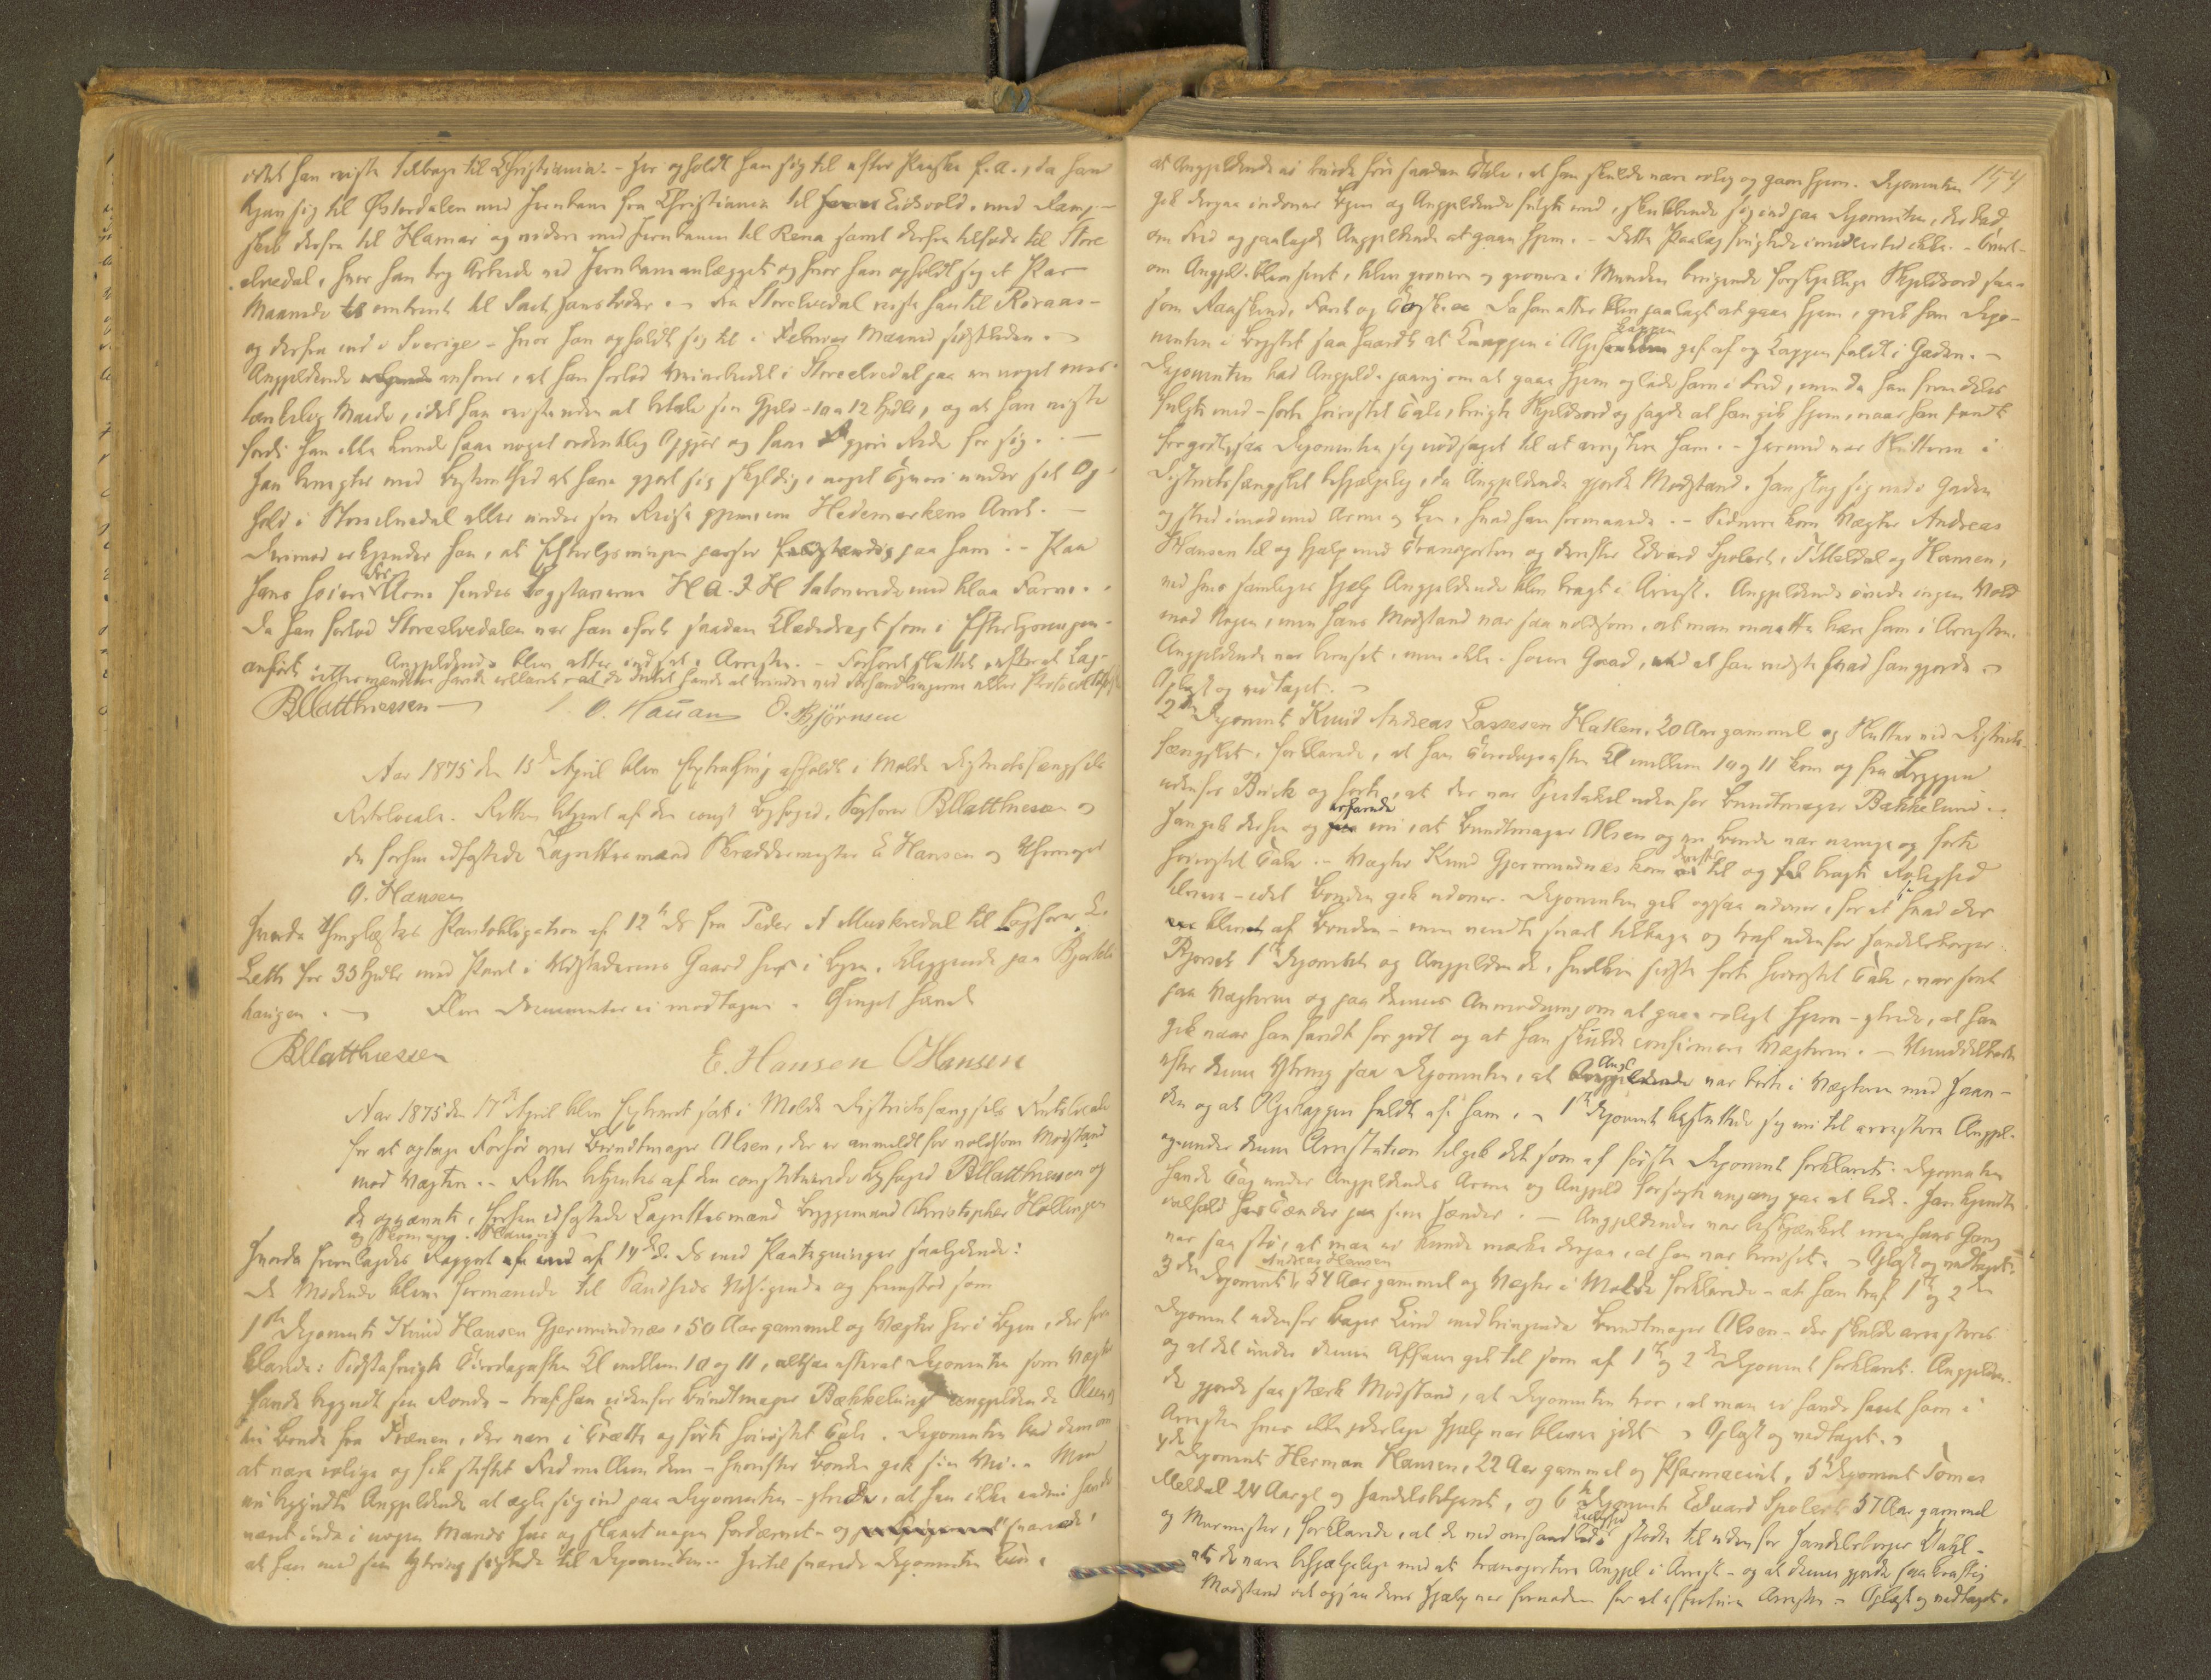 idet han reiste tilbage til Christiania. - Her opholdt han sig til efter Paaske f. a., da han
begav sig til Østerdalen med Jernbane fra Christiania til Eidsvold, med Damp-
skib derfra til Hamar og videre med Jernbanen til Rena samt derfra tilfods til Store
elvedal, hvor han tog Arbeide ved Jernbaneanlægget og hvor han opholdt sig et Par
Maaneder omtrent til Sanct Hanstider. - Fra Storelvedal reiste han til Röraas -
og derfra ind i Sverige - hvor han opholdt sig til i Februar Maaned sidstleden. -
Angjeldende anfører, at han forlod Arbeidet i Storeelvedal paa en noget mis-
tænkelig Maade, idet han reiste uden at betale sin Gjeld - 10 a 12 Spdlr, og at han reiste
fordi han ikke kunde faae noget ordentlig Opgjør og faae gjøre Rede for sig. -
Han benegter med Bestemthed at have gjort sig skyldig i noget Tyveri under sit Op-
hold i Storelvedal eller under sin Reise gjennem Hedemarkens Amt. -
Derimod erkjender han, at Efterlysningen passer fuldstændig paa ham. - Paa
hans høire Arm findes Bogstaverne H A. J H tatoverede med blaa Farve. -
Da han forlod Storeelvedalen var han iført saadan Klædedragt som i Efterlysningen
anført. Angjeldende blev atter indsat i Arresten. - Forhøret sluttet, efterat Lag-
rettesmændene havde erklæret at de Intet havde at erindre ved Forhandlingerne eller Protocoltilførslen
BMatthiessen O. Hauan O. Björnsen
Aar 1875 den 15de April blev Extrathing afholdt i Molde Districtsfængsels
Retslocale. Retten betjent af den const Byfoged, Sagfører BMatthiessen og
de forhen edfæstede Lagrettesmænd Skræddermester E Hansen og Uhrmager
O. Hansen
Hvorda thinglæstes Pantobligation af 12te ds fra Peder A Muskedal til Sagfører L.
Leth for 33 Spdlr med Pant i Udstederens Gaard her i Byen, beliggende paa Bjerkli
haugen. - Flere Documenter ei modtagne. Thinget hævet
BMatthiessen E. Hansen OHansen
Aar 1875 den 17de April blev Extraret sat i Molde Districtsfængsels Retslocale
for at optage Forhør over Bundtmager Olsen, der er anmeldt for voldsom Modstand
mod Vægteren. - Retten betjentes af den constituerede Byfoged BMatthiessen og
de opnævnte, forhen edfæstede Lagrettesmænd Byggemand Christopher Hollingen
og Skomager
Hvorda fremlagdes Rapport af 14de ds med Paategninger saalydende:
De Mødende bleve formanede til Sandheds Udsigende og fremstod som
1ste Deponent Knud Hansen Gjermundnes, 50 Aar gammel og Vægter her i Byen, der for
klarede: Sidstafvigte Tirsdagaften Kl mellem 10 og 11, altsaa efterat Deponenten som Vægter
havde begyndt sin Ronde - traf han udenfor Bundtmager Bækkelund angjeldende Olsen og
en Bonde fra Frænen, der vare i Trætte og førte høirøstet Tale. Deponenten bad dem om
at være rolige og fik stiftet Fred mellem dem - hvorefter Bonden gik sin Vei. - Men
nu begyndte Angjeldende at yple sig ind paa Deponenten - ytrede, at han ikke endnu havde
været inde i nogen Mands Hus og slaaet nogen fordærvet - og svarede,
at han med sin Ytring sigtede til Deponenten. Hertil svarede Deponenten kun,
154
at Angjeldende ei burde føre saadan Tale, at han skulde være rolig og gaae hjem. Deponenten
gik derpaa indover Byen og Angjeldende fulgte med, skubbende sig ind paa Deponenten, der bad
om Fred og paalagde Angjeldende at gaae hjem. - Dette Paalæg frugtede imidlertid ikke. - Tvert-
om Angjeld. blev sint, blev grovere og grovere i Munden brugende forskjellige Skjeldsord saa-
som Raaskind, Fant og Da han atter blev paalagt at gaae hjem, greb han Depo-
nenten i Brystet saa haardt at Knappen i Kappen gik af og Kappen faldt i Gaden. -
Deponenten bad Angjeld. paany om at gaae hjem og lade ham i Fred, men da han fremdeles
fulgte med - førte høirøstet Tale, brugte Skjeldsord og sagde at han gik hjem, naar han fandt
for godt, saa Deponenten sig nødsaget til at arrestere ham. - Herved var Slutteren i
Districtsfængslet behjælpelig, da Angjeldende gjorde Modstand. Han slog sig ned i Gaden
og stred imod med Arme og Ben, hvad han formaaede. - Sidenere kom Vægter Andreas
Hansen til og hjalp med Transporten og derefter Edvard Spolert, T Meldal og Hansen,
ved hvis samlige Hjælp Angjeldende blev bragt i Arrest. Angjeldende øvede ingen Vold
mod Nogen, men hans Modstand var saa voldsom, at man maatte bære ham i Arresten.
Angjeldende var beruset, men ikke i høiere Grad, end at han vidste hvad han gjorde -
Oplæst og vedtaget. -
2den Deponent Knud Andreas Lassesen Hatlen, 20 Aar gammel og Slutter ved Districts-
fængslet, forklarede, at han Tirsdagaften Kl mellem 10 og 11 kom op fra Bryggen
udenfor Brick og hørte, at der var Spektakel udenfor Bundtmager Bækkelund. -
Han gik derhen og erfarede nu, at Bundtmager Olsen og en Bonde var uenige og førte
høirøstet Tale. - Vægter Knud Gjermundnes kom derefter til og bragte Rolighed
tilveie - idet Bonden gik udover. Deponenten gik ogsaa udover, for at see hvad der
blev af Bonden - men vendte snart tilbage og traf udenfor Handelsborger
Bjørset 1ste Deponent og Angjeldende, hvilken sidste førte høirøstet Tale, var sint
paa Vægteren og paa dennes Anmodning om at gaae roligt hjem - ytrede, at han
gik naar han fandt for godt og at han skulde confirmere Vægteren. - Umiddelbart
efter denne Ytring saa Deponenten, at Angjl var borte i Vægteren med Haan-
den og at Kappen faldt af ham. - 1ste Deponent besluttede sig nu til arrestere Angjel.
og under denne Arrestation tilgik det som af første Deponent forklaret. Deponenten
havde Tag under Angjeldendes Arme og Angjeld forsøgte engang paa at bide. Han kjendte
ialfald hans Tænder paa sine Hænder. - Angjeldende var beskjænket men hans Gang
var saa stø, at man ei kunde mærke derpaa, at han var beruset. - Oplæst og vedtaget.
3die Deponent Andreas Hansen 54 Aar gammel og Vægter i Molde forklarede - at han traf 1ste og 2den
Deponent udenfor Bager Lind medbringende Bundtmager Olsen - der skulde arresteres
og at det under denne Affaire gik til som af 1ste og 2den Deponent forklaret. Angjelden-
de gjorde saa stærk Modstand, at Deponenten tror, at man ei havde faaet ham i
Arresten hvis ikke yderligere Hjælp var bleven ydet. - Oplæst og vedtaget. -
4de Deponent Herman Hansen, 22 Aar gammel og Pharmaceut, 5te Deponent Tomas
Meldal 24 Aar gl og Handelsbetjent, og 6te Deponent Edvard Spolert 57 Aar gammel
og Murmester, forklarede, at de ved omhandlede Leilighed stødte til udenfor Handelsborger Dahl -
at de vare behjælpelige med at transportere Angjel i Arrest - og at denne gjorde saa kraftig
Modstand at ogsaa deres Hjælp var fornøden for at effectuere Arresten. - Oplæst og vedtaget.